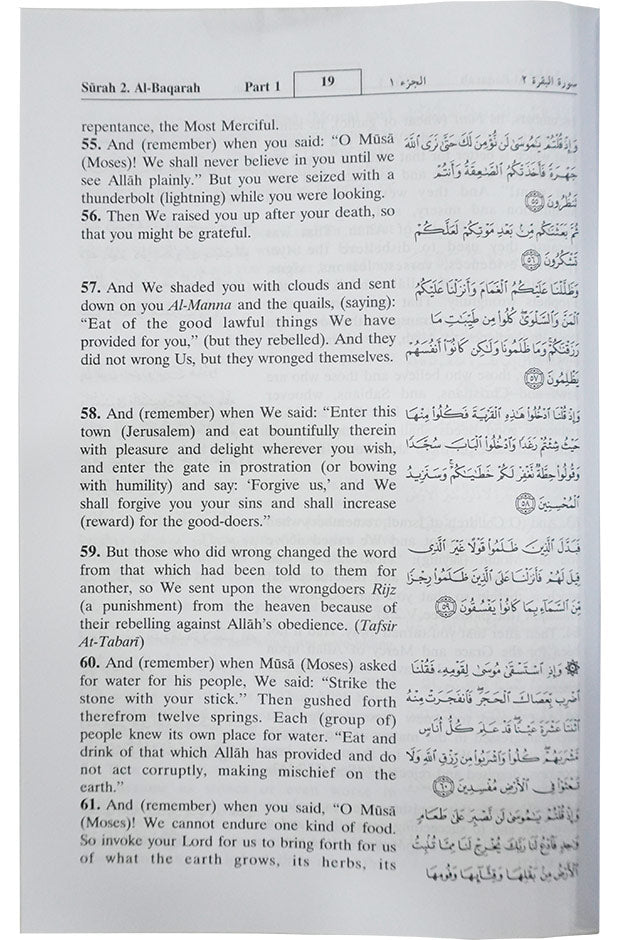 Sūrah 2. Al-Baqarah Part 1 19 الجزء ١ سورة البقرة ٢
repentance, the Most Merciful.
55. And (remember) when you said: “O Mūsā
(Moses)! We shall never believe in you until we
see Allāh plainly.” But you were seized with a
thunderbolt (lightning) while you were looking.
56. Then We raised you up after your death, so
that you might be grateful.
57. And We shaded you with clouds and sent
down on you Al-Manna and the quails, (saying):
“Eat of the good lawful things We have
provided for you,” (but they rebelled). And they
did not wrong Us, but they wronged themselves.
58. And (remember) when We said: “Enter this
town (Jerusalem) and eat bountifully therein
with pleasure and delight wherever you wish,
and enter the gate in prostration (or bowing
with humility) and say: ‘Forgive us,’ and We
shall forgive you your sins and shall increase
(reward) for the good-doers.”
59. But those who did wrong changed the word
from that which had been told to them for
another, so We sent upon the wrongdoers Rijz
(a punishment) from the heaven because of
their rebelling against Allāh’s obedience. (Tafsir
At-Tabarī)
60. And (remember) when Mūsā (Moses) asked
for water for his people, We said: “Strike the
stone with your stick.” Then gushed forth
therefrom twelve springs. Each (group of)
people knew its own place for water. “Eat and
drink of that which Allāh has provided and do
not act corruptly, making mischief on the
earth.”
61. And (remember) when you said, “O Mūsā
(Moses)! We cannot endure one kind of food.
So invoke your Lord for us to bring forth for us
of what the earth grows, its herbs, its
وَإِذْ قُلْتُمْ يَٰمُوسَىٰ لَن نُّؤْمِنَ لَكَ حَتَّىٰ نَرَى ٱللَّهَ
جَهْرَةً فَأَخَذَتْكُمُ ٱلصَّٰعِقَةُ وَأَنتُمْ
تَنظُرُونَ ٥٥
ثُمَّ بَعَثْنَٰكُم مِّنۢ بَعْدِ مَوْتِكُمْ لَعَلَّكُمْ
تَشْكُرُونَ ٥٦
وَظَلَّلْنَا عَلَيْكُمُ ٱلْغَمَامَ وَأَنزَلْنَا عَلَيْكُمُ
ٱلْمَنَّ وَٱلسَّلْوَىٰ كُلُوا۟ مِن طَيِّبَٰتِ مَا
رَزَقْنَٰكُمْ وَمَا ظَلَمُونَا وَلَٰكِن كَانُوٓا۟ أَنفُسَهُمْ
يَظْلِمُونَ ٥٧
وَإِذْ قُلْنَا ٱدْخُلُوا۟ هَٰذِهِ ٱلْقَرْيَةَ فَكُلُوا۟ مِنْهَا
حَيْثُ شِئْتُمْ رَغَدًا وَٱدْخُلُوا۟ ٱلْبَابَ سُجَّدًا
وَقُولُوا۟ حِطَّةٌ نَّغْفِرْ لَكُمْ خَطَٰيَٰكُمْ وَسَنَزِيدُ
ٱلْمُحْسِنِينَ ٥٨
فَبَدَّلَ ٱلَّذِينَ ظَلَمُوا۟ قَوْلًا غَيْرَ ٱلَّذِى
قِيلَ لَهُمْ فَأَنزَلْنَا عَلَى ٱلَّذِينَ ظَلَمُوا۟ رِجْزًا
مِّنَ ٱلسَّمَآءِ بِمَا كَانُوا۟ يَفْسُقُونَ ٥٩
۞ وَإِذِ ٱسْتَسْقَىٰ مُوسَىٰ لِقَوْمِهِۦ فَقُلْنَا
ٱضْرِب بِّعَصَاكَ ٱلْحَجَرَ فَٱنفَجَرَتْ مِنْهُ
ٱثْنَتَا عَشْرَةَ عَيْنًا قَدْ عَلِمَ كُلُّ أُنَاسٍ
مَّشْرَبَهُمْ كُلُوا۟ وَٱشْرَبُوا۟ مِن رِّزْقِ ٱللَّهِ وَلَا
تَعْثَوْا۟ فِى ٱلْأَرْضِ مُفْسِدِينَ ٦٠
وَإِذْ قُلْتُمْ يَٰمُوسَىٰ لَن نَّصْبِرَ عَلَىٰ طَعَامٍ
وَٰحِدٍ فَٱدْعُ لَنَا رَبَّكَ يُخْرِجْ لَنَا مِمَّا تُنۢبِتُ
ٱلْأَرْضُ مِنۢ بَقْلِهَا وَقِثَّآئِهَا وَفُومِهَا